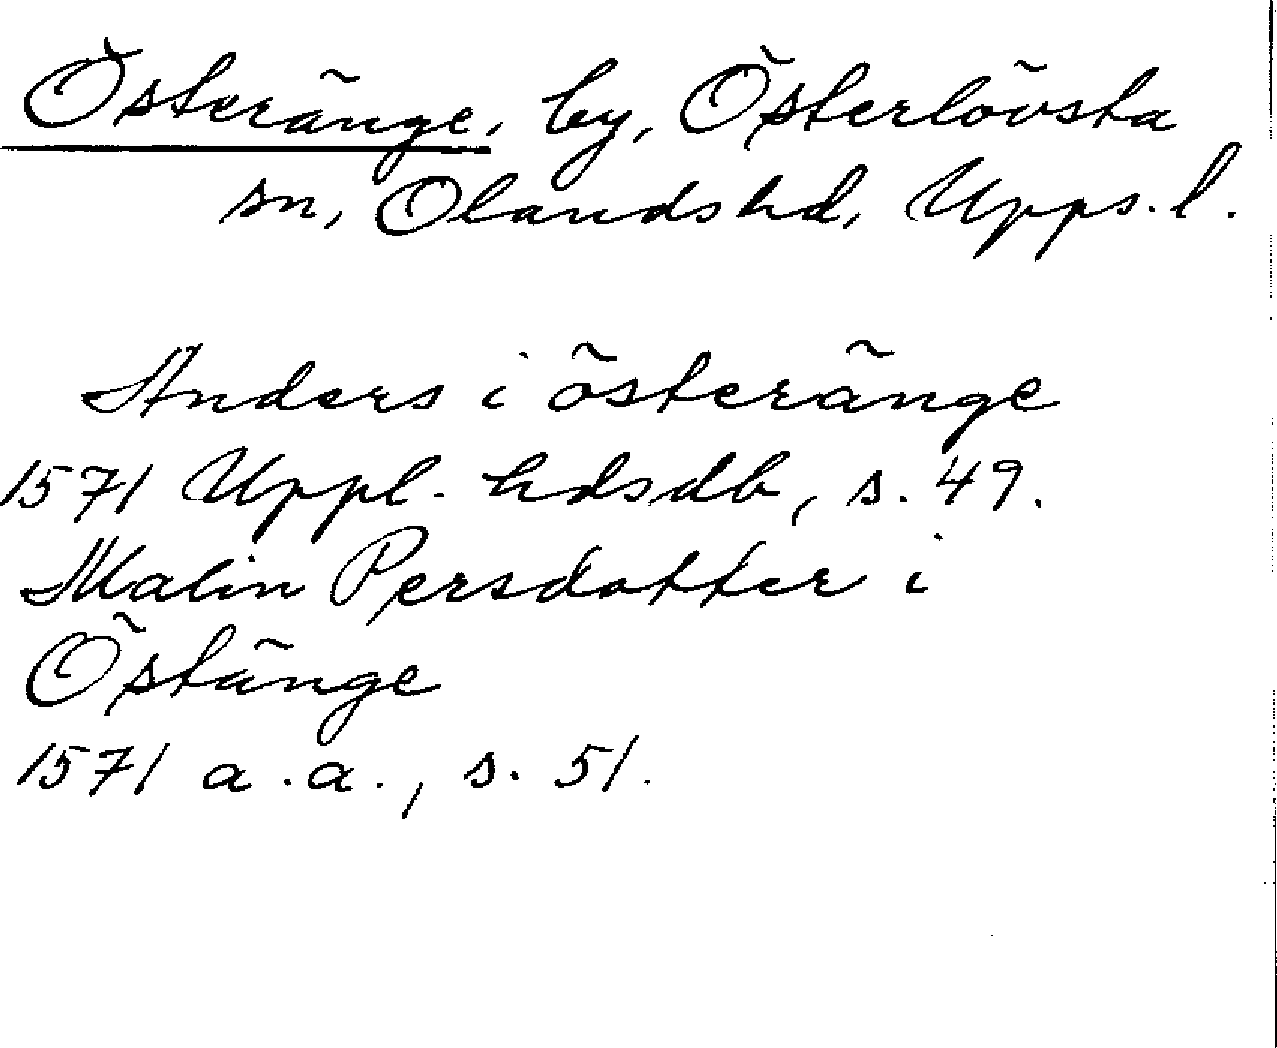 Österänge, by, Österlövsta
sn, Olands hd, Upps. l.
Anders i österänge
1571 Uppl. hdsdb, s. 49.
Malin Persdotter i
Östänge
1571 a.a., s. 51.